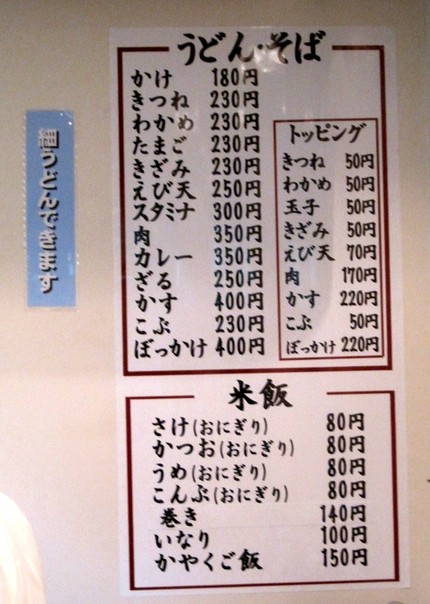 細うどんできます
うどん・そば
かけ 180円
きつね 230円
わかめ 230円
たまご 230円
きざみ 230円
えび天 250円
スタミナ 300円
肉 350円
カレー 350円
ざる 250円
かす 400円
こぶ 230円
ぼっかけ 400円
トッピング
きつね 50円
わかめ 50円
玉子 50円
きざみ 50円
えび天 70円
肉 170円
かす 220円
こぶ 50円
ぼっかけ 220円
米飯
さけ(おにぎり) 80円
かつお(おにぎり) 80円
うめ(おにぎり) 80円
こんぶ(おにぎり) 80円
巻き 140円
いなり 100円
かやくご飯 150円